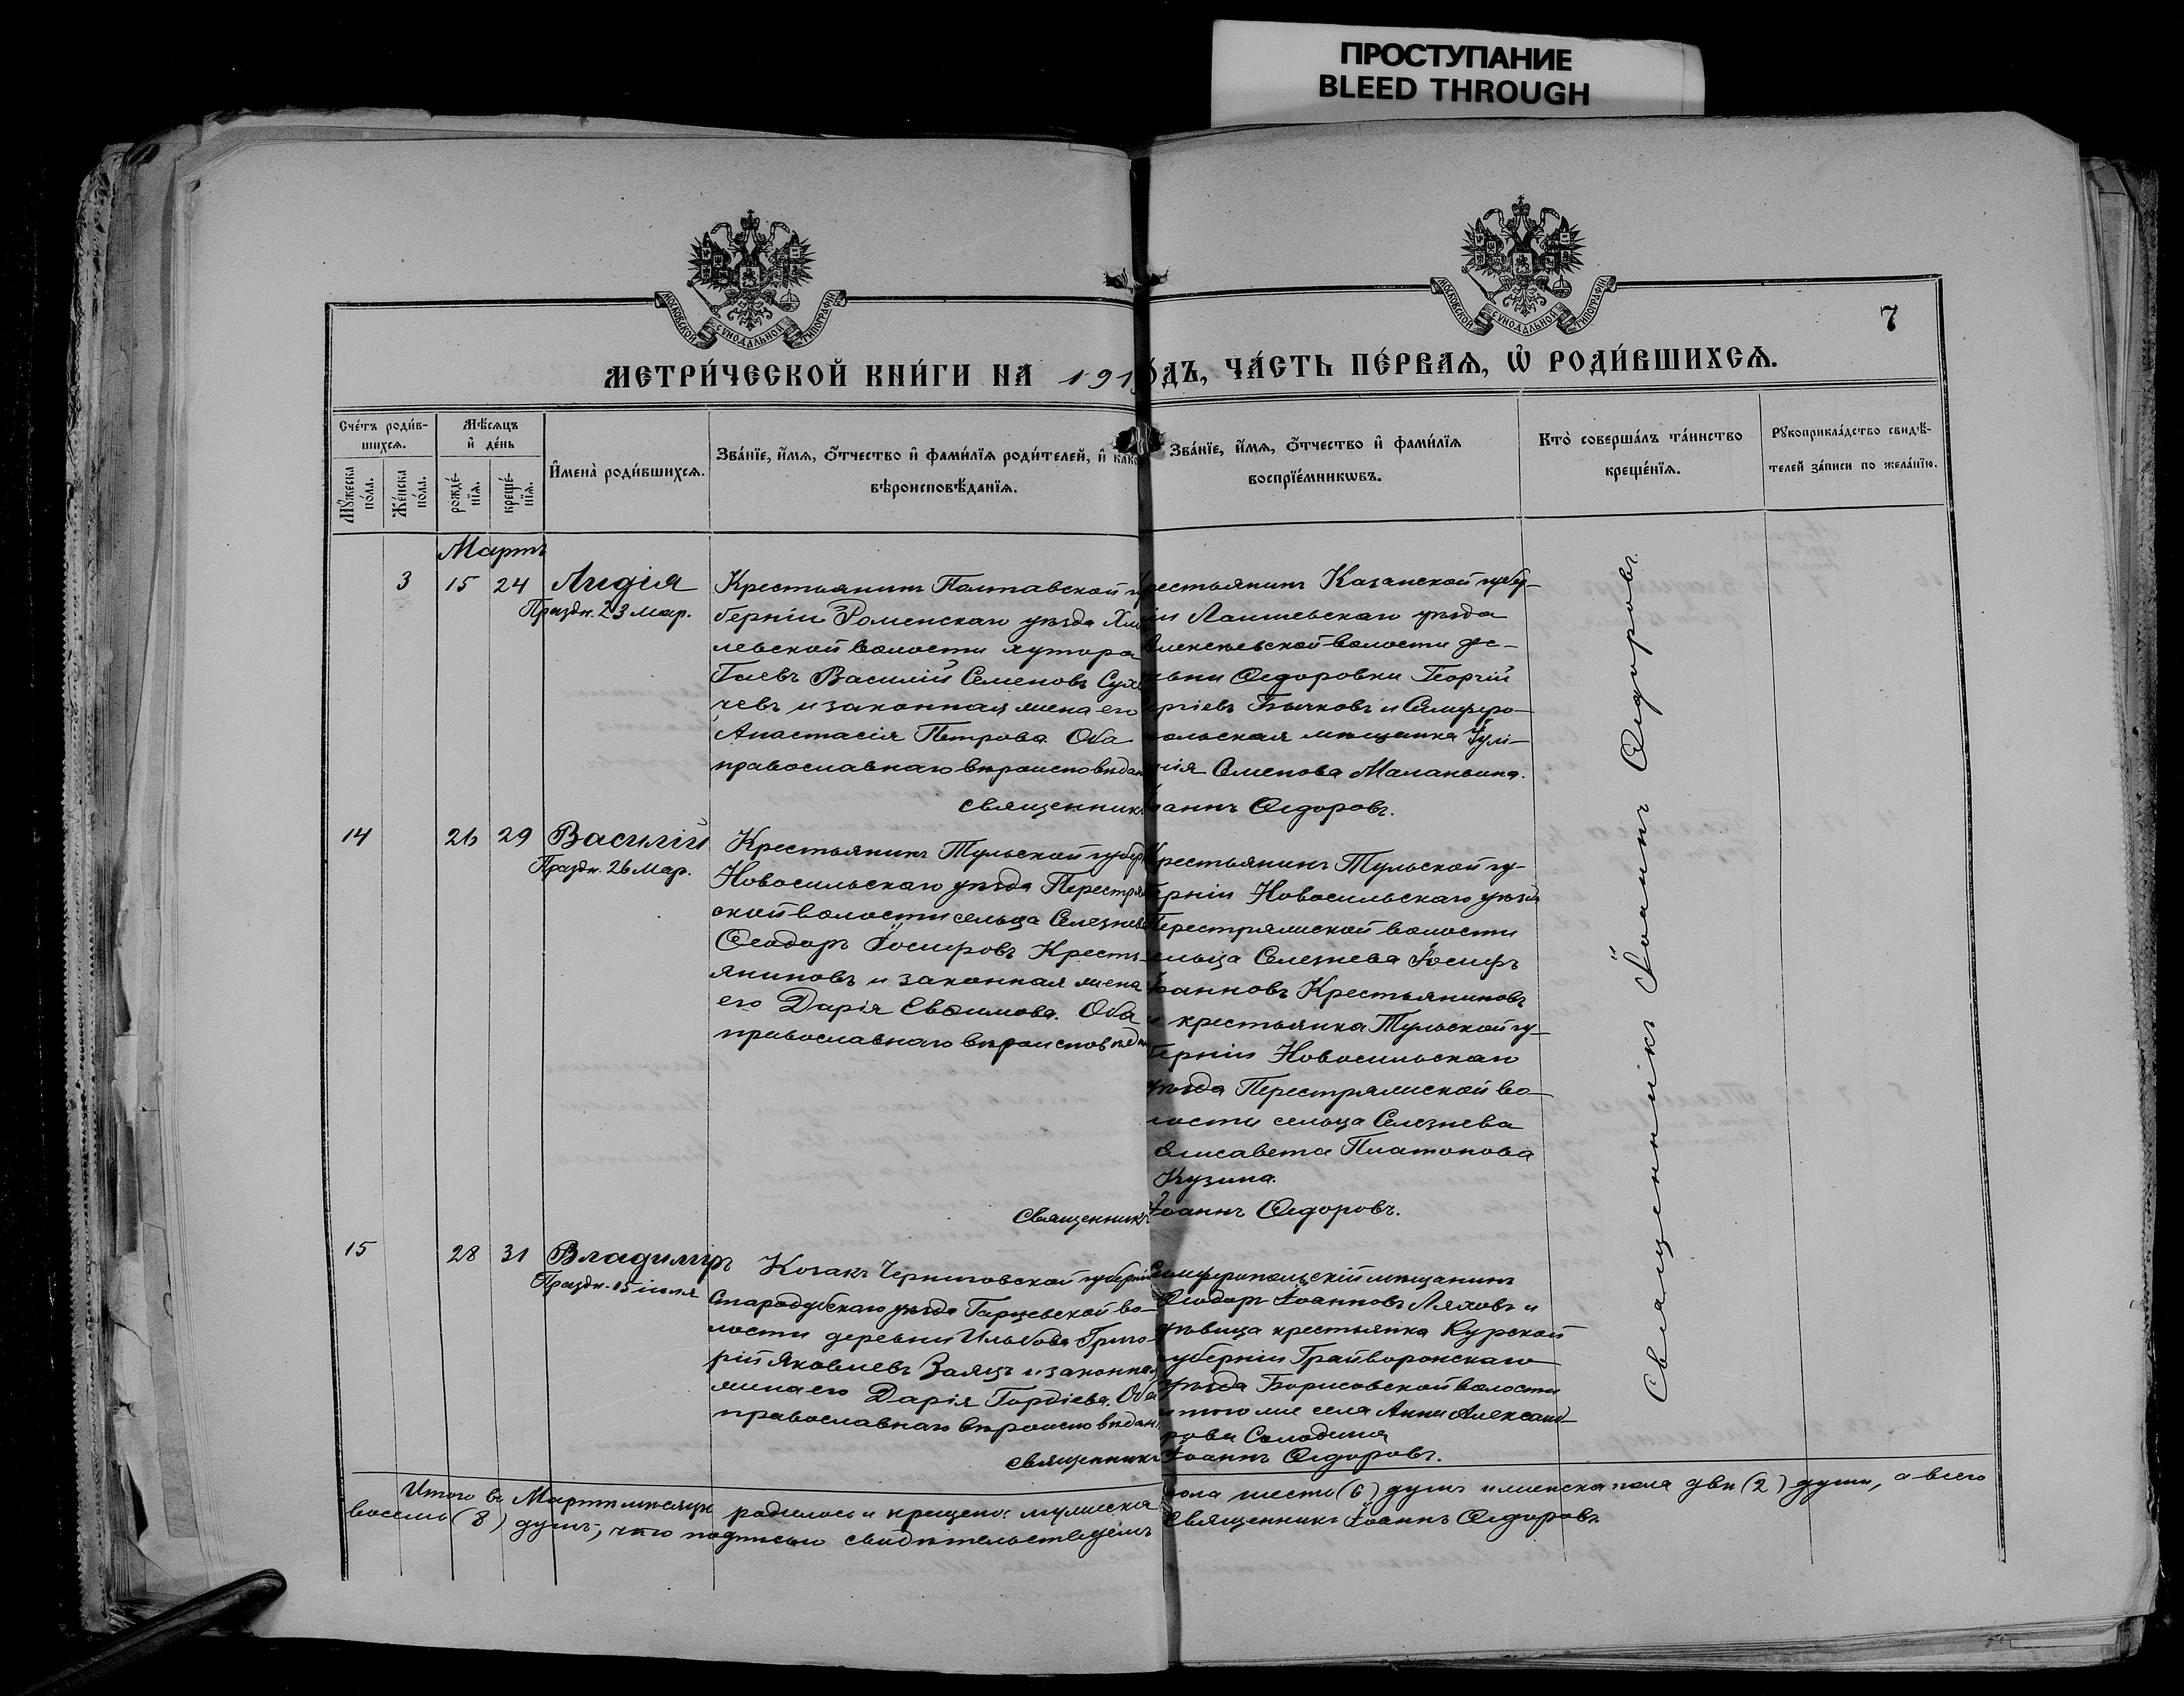 ПРОСТУПАНИЕ
BLEED THROUGH
МОСКОВСКОЙ СѴНОДАЛЬНОЙ ТИПОГРАФІИ
МОСКОВСКОЙ СѴНОДАЛЬНОЙ ТИПОГРАФІИ
7
МЕТРИ́ЧЕСКОЙ КНИ́ГИ НА 191
ОДЪ, ЧА́СТЬ ПЕ́РВАѦ, Ѡ҆ РОДИ́ВШИХСѦ.
Сче́тъ роди́в-
шихсѧ.
Мѹ́жеска по́ла.
Же́нска по́ла.
Мѣ́сѧцъ
и҆ де́нь
рожде́-
нїѧ.
креще́-
нїѧ.
И҆мена̀ роди́вшихсѧ.
Зва́нїе, и҆́мѧ, ѻ҆́тчество и҆ фами́лїѧ роди́телей, и҆ како
вѣроисповѣ́данїѧ.
Зва́нїе, и҆́мѧ, ѻ҆́тчество и҆ фами́лїѧ
воспрїе́мникѡвъ.
Кто̀ соверша́лъ та́инство
креще́нїѧ.
Рѹкоприкла́дство свидѣ́-
телей за́писи по жела́нїю.
Мартъ
3 15 24 Лидія
Праздн. 23 мар.
Крестьянинъ Полтавской
берніи Роменскаго уѣзда
левской волости хутора
Гаевъ Василій Семеновъ
чевъ и законная жена его
Анастасія Петрова. Оба
православнаго вѣроисповѣдан
священникъ
рестьянинъ Казанской губер-
іи Лаишевскаго уѣзда
Алексѣевской волости де-
вни Ѳедоровки Георгій
ргіевъ Бычковъ и Симферо-
польская мѣщанка Іулі-
нія Семенова Маланьина.
Іоаннъ Ѳедоровъ.
14 26 29 Василій
Праздн. 26 мар.
Крестьянинъ Тульской губер
Новосильскаго уѣзда Перестряж
ской волости сельца Селезнева
Ѳеодоръ Іосифовъ Кресть-
яниновъ и законная жена
его Дарія Евѳимова. Оба
православнаго вѣроисповѣдан
священникъ
Крестьянинъ Тульской гу-
берніи Новосильскаго уѣзда
Перестряжской волости
сельца Селезнева Іосифъ
Іоанновъ Крестьяниновъ
и крестьянка Тульской гу-
берніи Новосильскаго
уѣзда Перестряжской во-
лости сельца Селезнева
Елисавета Платонова
Кузина.
Іоаннъ Ѳедоровъ.
15 28 31 Владиміръ
Праздн. 15 іюля
Козакъ Черниговской губерніи
Стародубскаго уѣзда Гарцевской во-
лости деревни Ильбова Григо-
рій Яковлевъ Заяцъ и законная
жена его Дарія Гордіева. Оба
православнаго вѣроисповѣдан
священникъ
Симферопольскій мѣщанинъ
Ѳеодоръ Іоанновъ Ляховъ и
дѣвица крестьянка Курской
губерніи Грайворонскаго
уѣзда Борисовской волости
и того же села Анна Александ-
рова Солодина
Іоаннъ Ѳедоровъ.
Священникъ Іоаннъ Ѳедоровъ.
Итого въ Мартѣ мѣсяцѣ родилось и крещено: мужеска
пола шесть (6) душъ и женска пола двѣ (2) души, а всего
восемь (8) душъ, что подписью свидѣтельствуемъ
Священникъ Іоаннъ Ѳедоровъ.